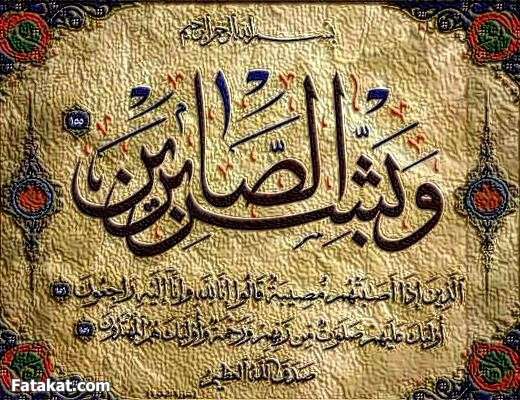 بسم الله الرحمن الرحيم
وَبَشِّرِ الصَّابِرِينَ ١٥٥
الَّذِينَ إِذَا أَصَابَتْهُمْ مُصِيبَةٌ قَالُوا إِنَّا لِلَّهِ وَإِنَّا إِلَيْهِ رَاجِعُونَ ١٥٦
أُولَئِكَ عَلَيْهِمْ صَلَوَاتٌ مِنْ رَبِّهِمْ وَرَحْمَةٌ وَأُولَئِكَ هُمُ الْمُهْتَدُونَ ١٥٧
صدق الله العظيم
Fatakat.com